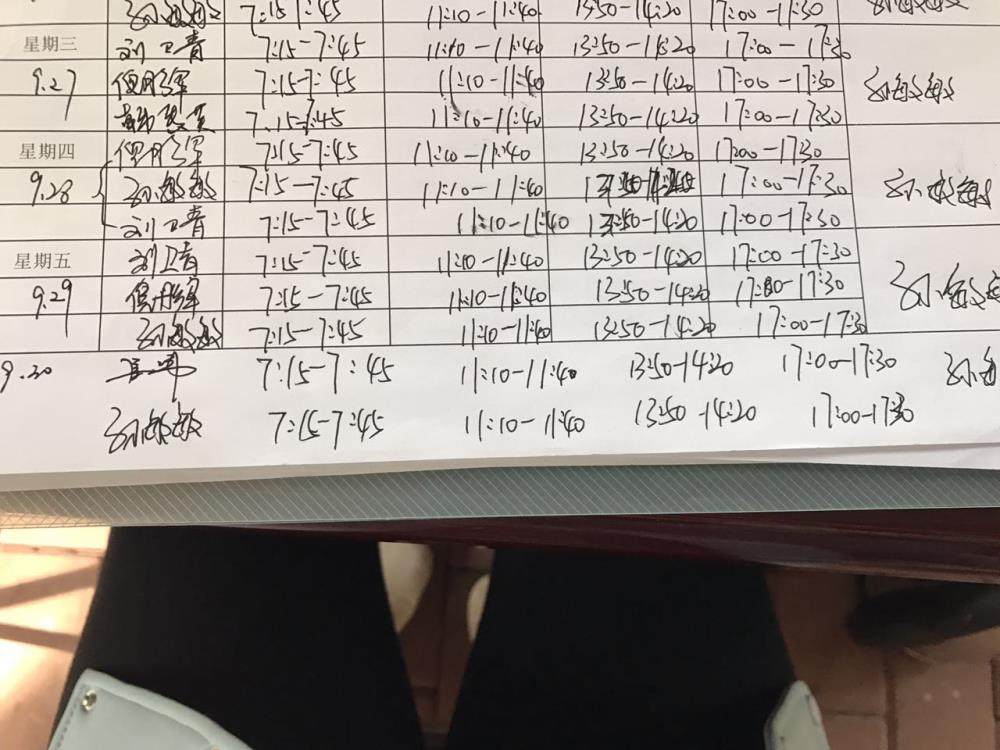 7:15-7:45 11:10-11:40 13:50-14:20 17:00-17:30
星期三 刘卫青 7:15-7:45 11:10-11:40 13:50-14:20 17:00-17:30
9.27 7:15-7:45 11:10-11:40 13:50-14:20 17:00-17:30 孙敏敏
7:15-7:45 11:10-11:40 13:50-14:20 17:00-17:30
星期四 7:15-7:45 11:10-11:40 13:50-14:20 17:00-17:30
9.28 孙敏敏 7:15-7:45 11:10-11:40 17:00-17:30 孙敏敏
刘卫青 7:15-7:45 11:10-11:40 13:50-14:20 17:00-17:30
星期五 刘卫青 7:15-7:45 11:10-11:40 13:50-14:20 17:00-17:30
9.29 7:15-7:45 11:10-11:40 13:50-14:20 17:00-17:30 孙敏敏
孙敏敏 7:15-7:45 11:10-11:40 13:50-14:20 17:00-17:30
9.30 7:15-7:45 11:10-11:40 13:50-14:20 17:00-17:30
孙敏敏 7:15-7:45 11:10-11:40 13:50-14:20 17:00-17:30